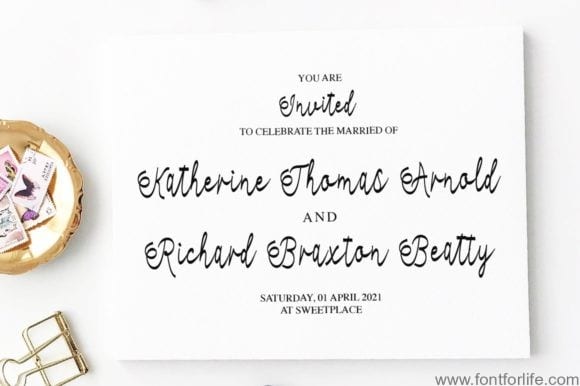 YOU ARE
Invited
TO CELEBRATE THE MARRIED OF
Katherine Thomas Arnold
AND
Richard Braxton Beatty
SATURDAY, 01 APRIL 2021
AT SWEETPLACE
www.fontforlife.com